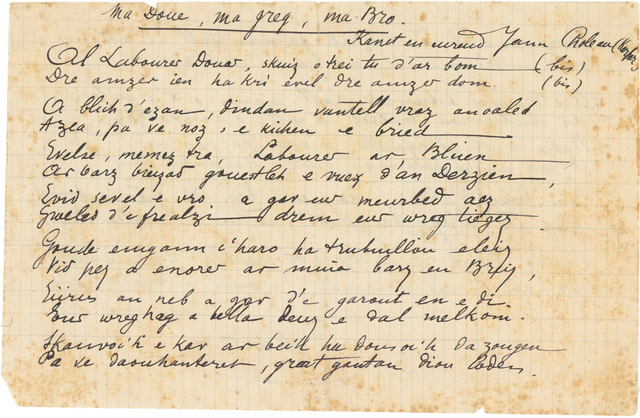 Ma Doue, ma greg, ma Bro.
Kanet en eured Jann Roleau
Al Labourer Douar, skuiz o trei tu d'ar bom (bis)
Dre amzer ien ha kri evel dre amzer domm (bis)
A blich d'ezan, dindan vantell vraz an oaled
Azea, pa ve noz, e kichen e bried
Evelse, memez tra, Labourer ar Bluen
Ar barz bieujad gouestlet e vuez d'an Derzien,
Evid sevel e vro a gar eur meurbed aez
Gweled d'e frealzi drem eur wreg tiegez
Goude emgann c'haro ha trubuillou eleiz
Vid pez a enorer ar muia barz en Breiz,
Eürus an neb a gar d'e garout en e di
Eur wreg hag a bella deuz e dal melkoni.
Skanvoc'h e kar ar beich ha dousoc'h da zougen
Pa ve daouhanteret, great gantan diou loden.